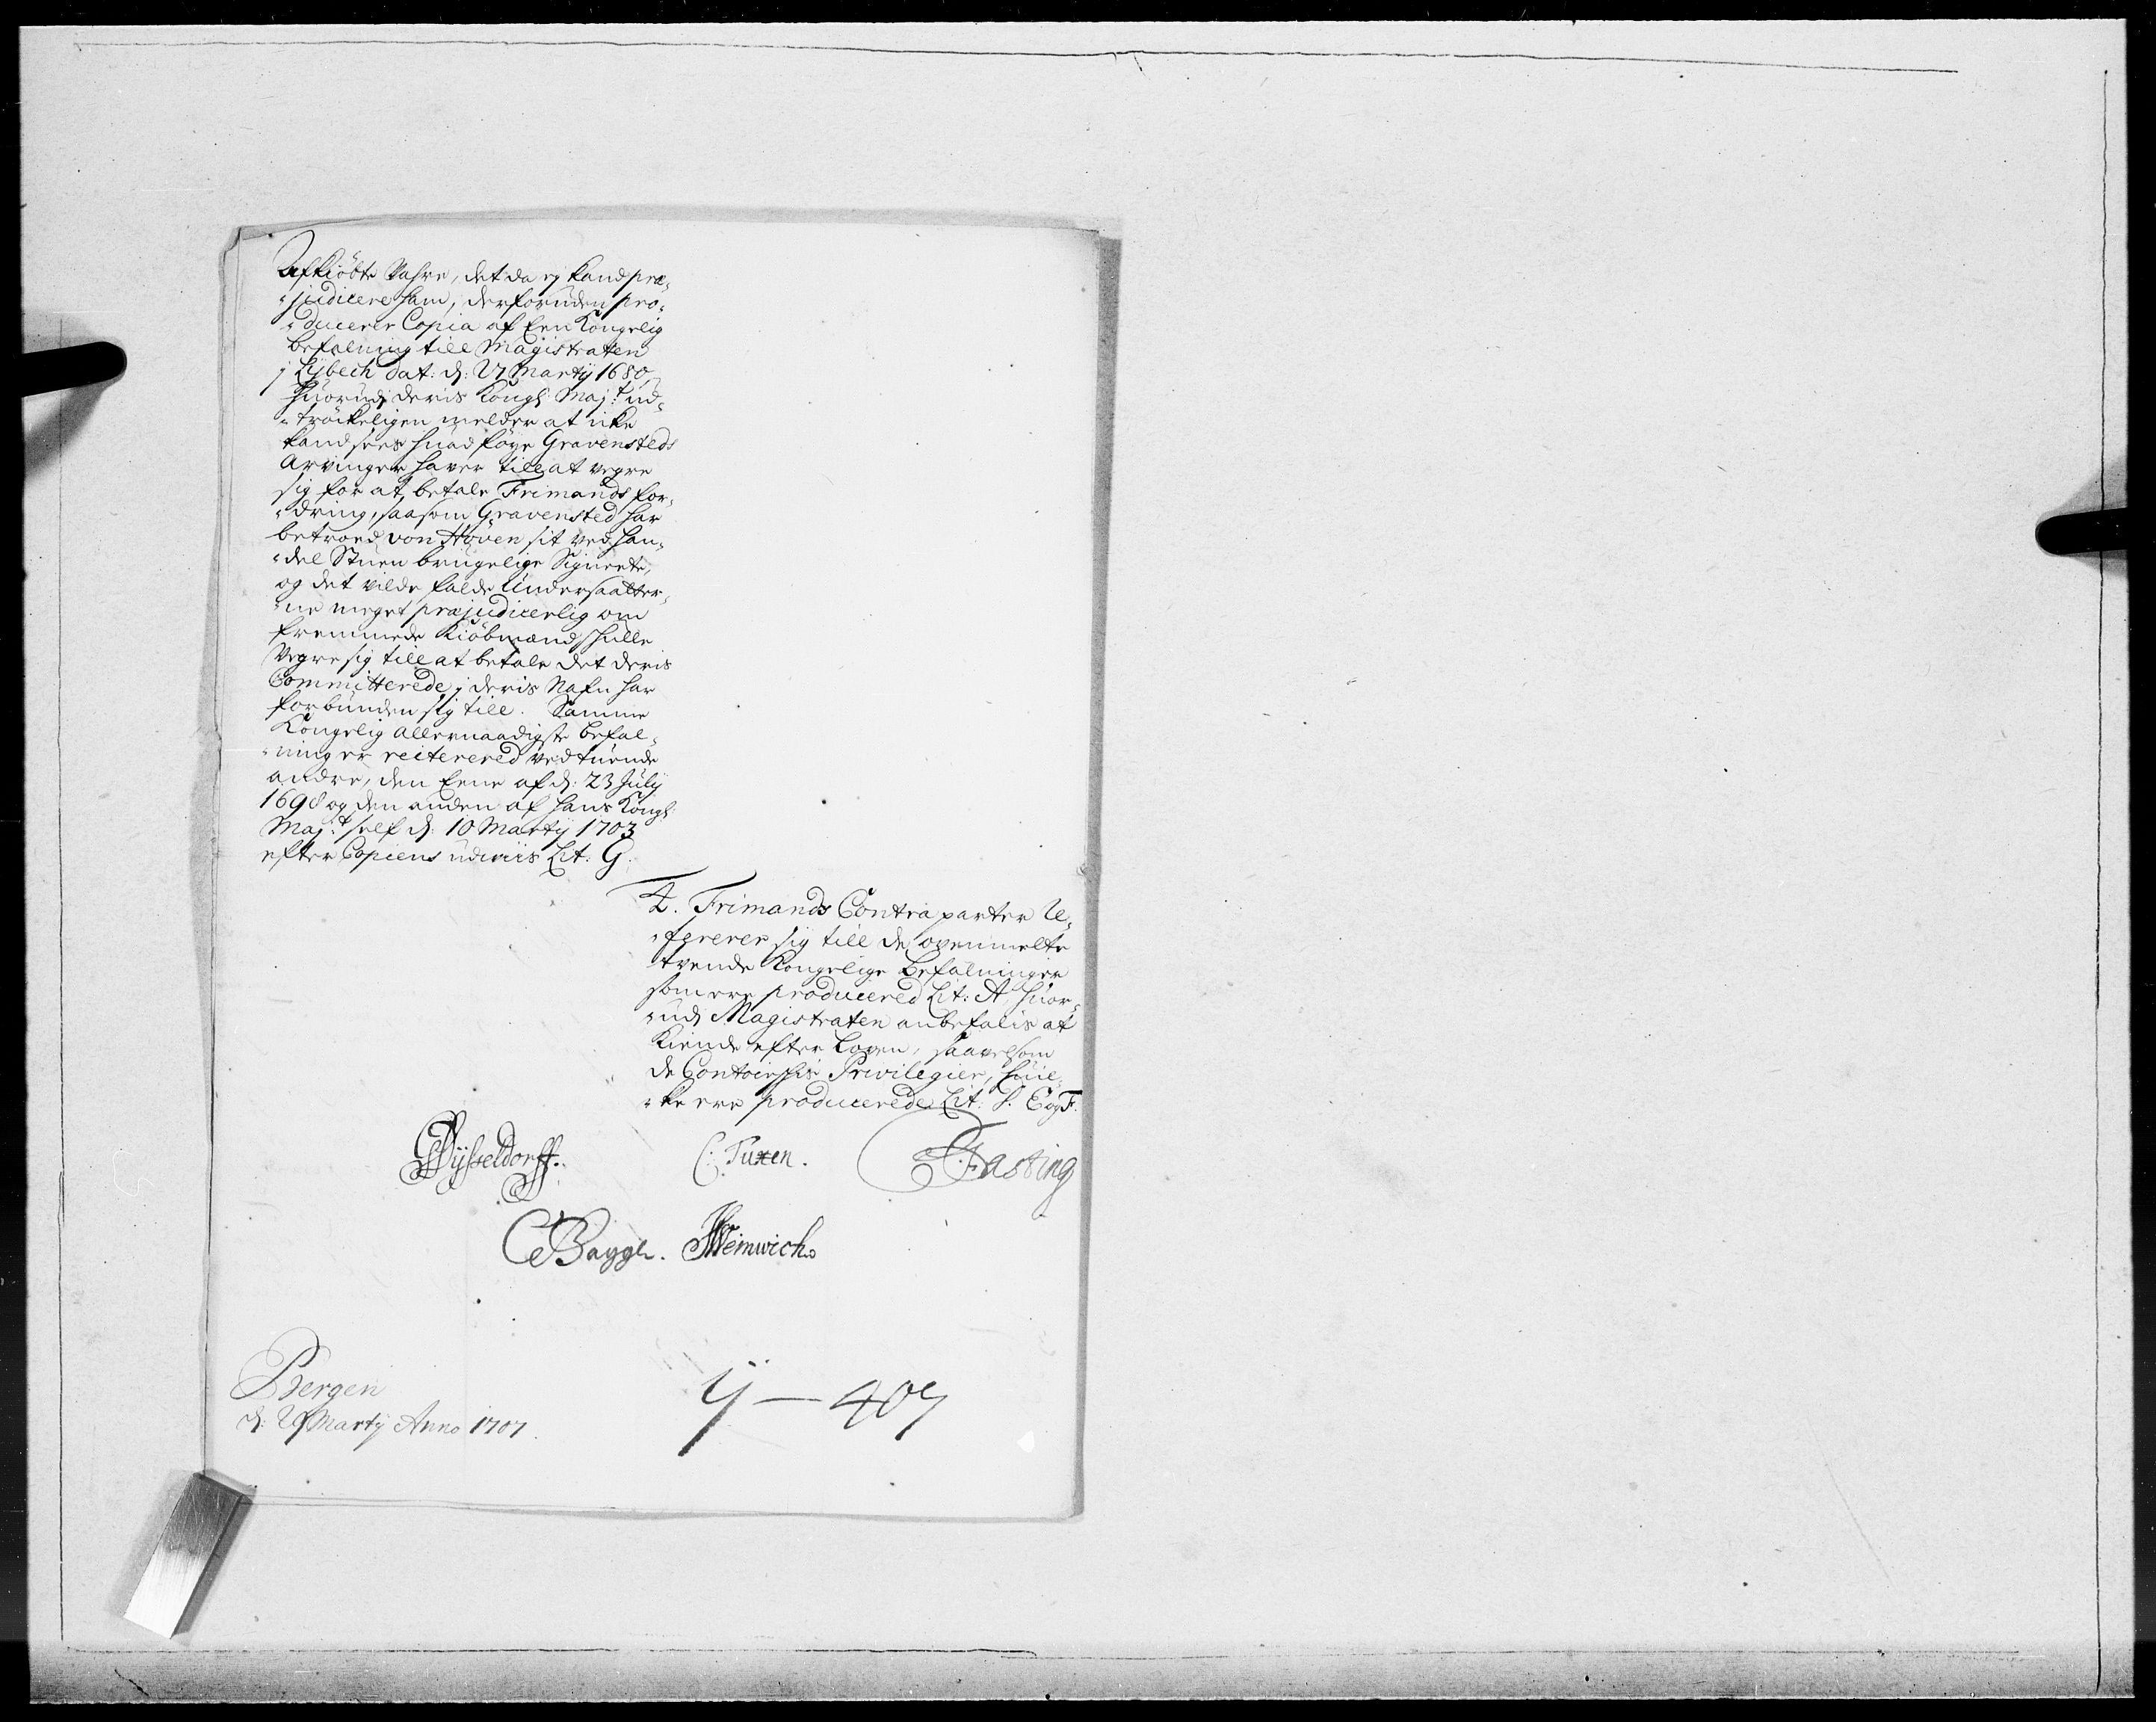 Afkiöbte Vahre, det da ej kand præ¸
¸judicere ham, derforuden pro¸
¸ducerer Copia af Een Kongelig
befalning till Magistraten
j Lybech dat: d: 27 Martij 1680,
huorudj deris Kongl: Maj:t ud¸
¸tröckeligen melder at icke
kand sees huad föye Gravensteds
Arvinger hafver till at vegre
sig for at betale Frimands for¸
¸dring, saasom Gravensted har
betroed von Höven sit ved han¸
¸del Stuen brugelige Signete,
og det vilde falde Undersaatter¸
¸ne meget præjudicerlig om
fremmede Kiöbmænd skulle
Vegre sig till at betale det deris
Committerede j deris Nafn har
forbunden sig till. Samme
Kongelig allernaadigste befal¸
¸ning er reiterered ved tuende
andre, den Eene af d: 23 Julij
1698 og den anden af hans Kongl:
Maj:t self d: 10 Martij 1703
efter Copiens udviis Lit: G.
4. Frimands Contraparter Re¸
¸fererer sig till de ovenmelte
tvende Kongelige befalninger
som ere producered Lit: A, huor¸
¸udj Magistraten anbefalis at
Kiende efter Loven, saavelsom
de Contoirske Privilegier, huil¸
¸ke ere producerede Lit: E og F.
Dysseldorff.
C: Tuxen.
Fasting
Bagge.
Weinwich
Bergen
d: 29 Martij Anno 1707.
4 — 407